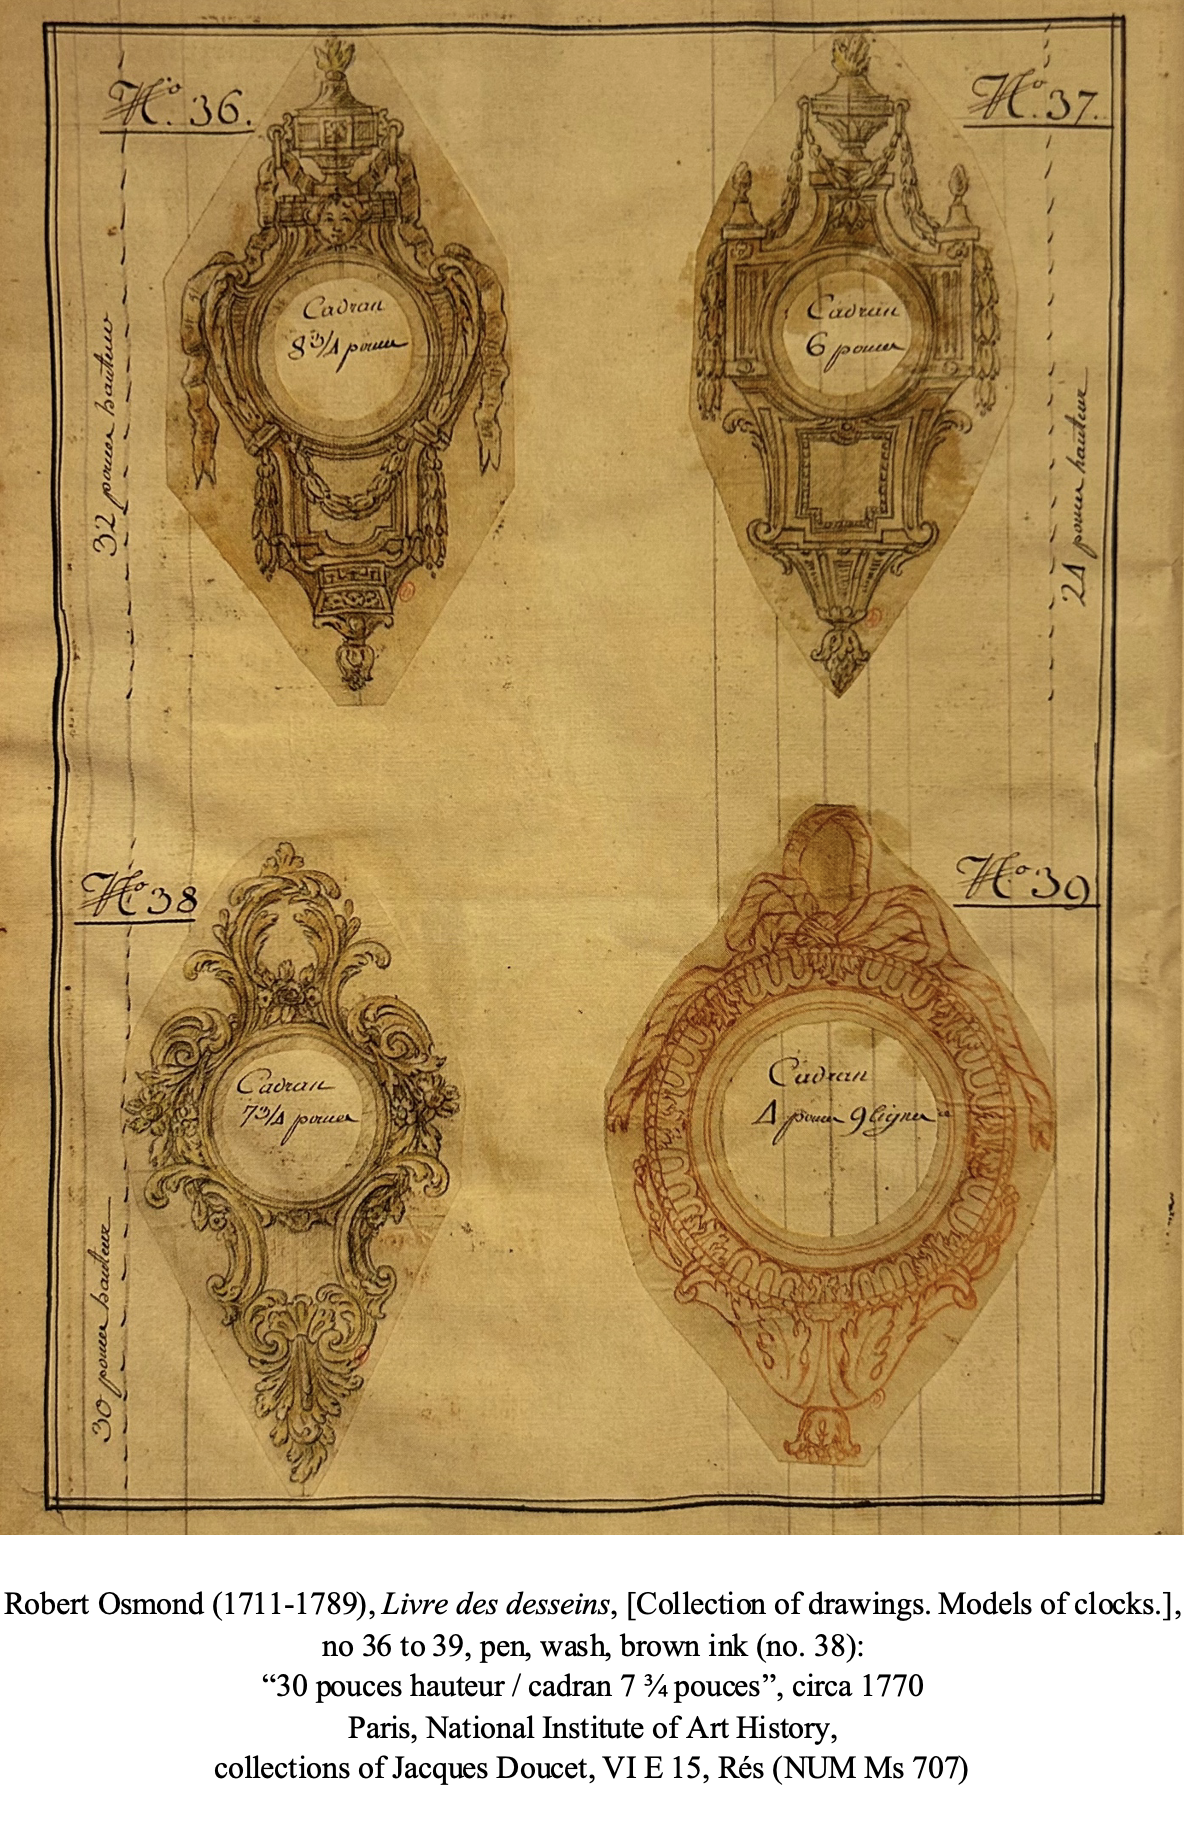 No. 36.
No. 37.
Cadran
8 3/4 pouces
Cadran
6 pouces
32 pouces hauteur
24 pouces hauteur
No 38
No. 39
Cadran
7 3/4 pouces
Cadran
4 pouces 9 lignes
30 pouces hauteur
Robert Osmond (1711-1789), Livre des desseins, [Collection of drawings. Models of clocks.],
no 36 to 39, pen, wash, brown ink (no. 38):
“30 pouces hauteur / cadran 7 ¾ pouces”, circa 1770
Paris, National Institute of Art History,
collections of Jacques Doucet, VI E 15, Rés (NUM Ms 707)